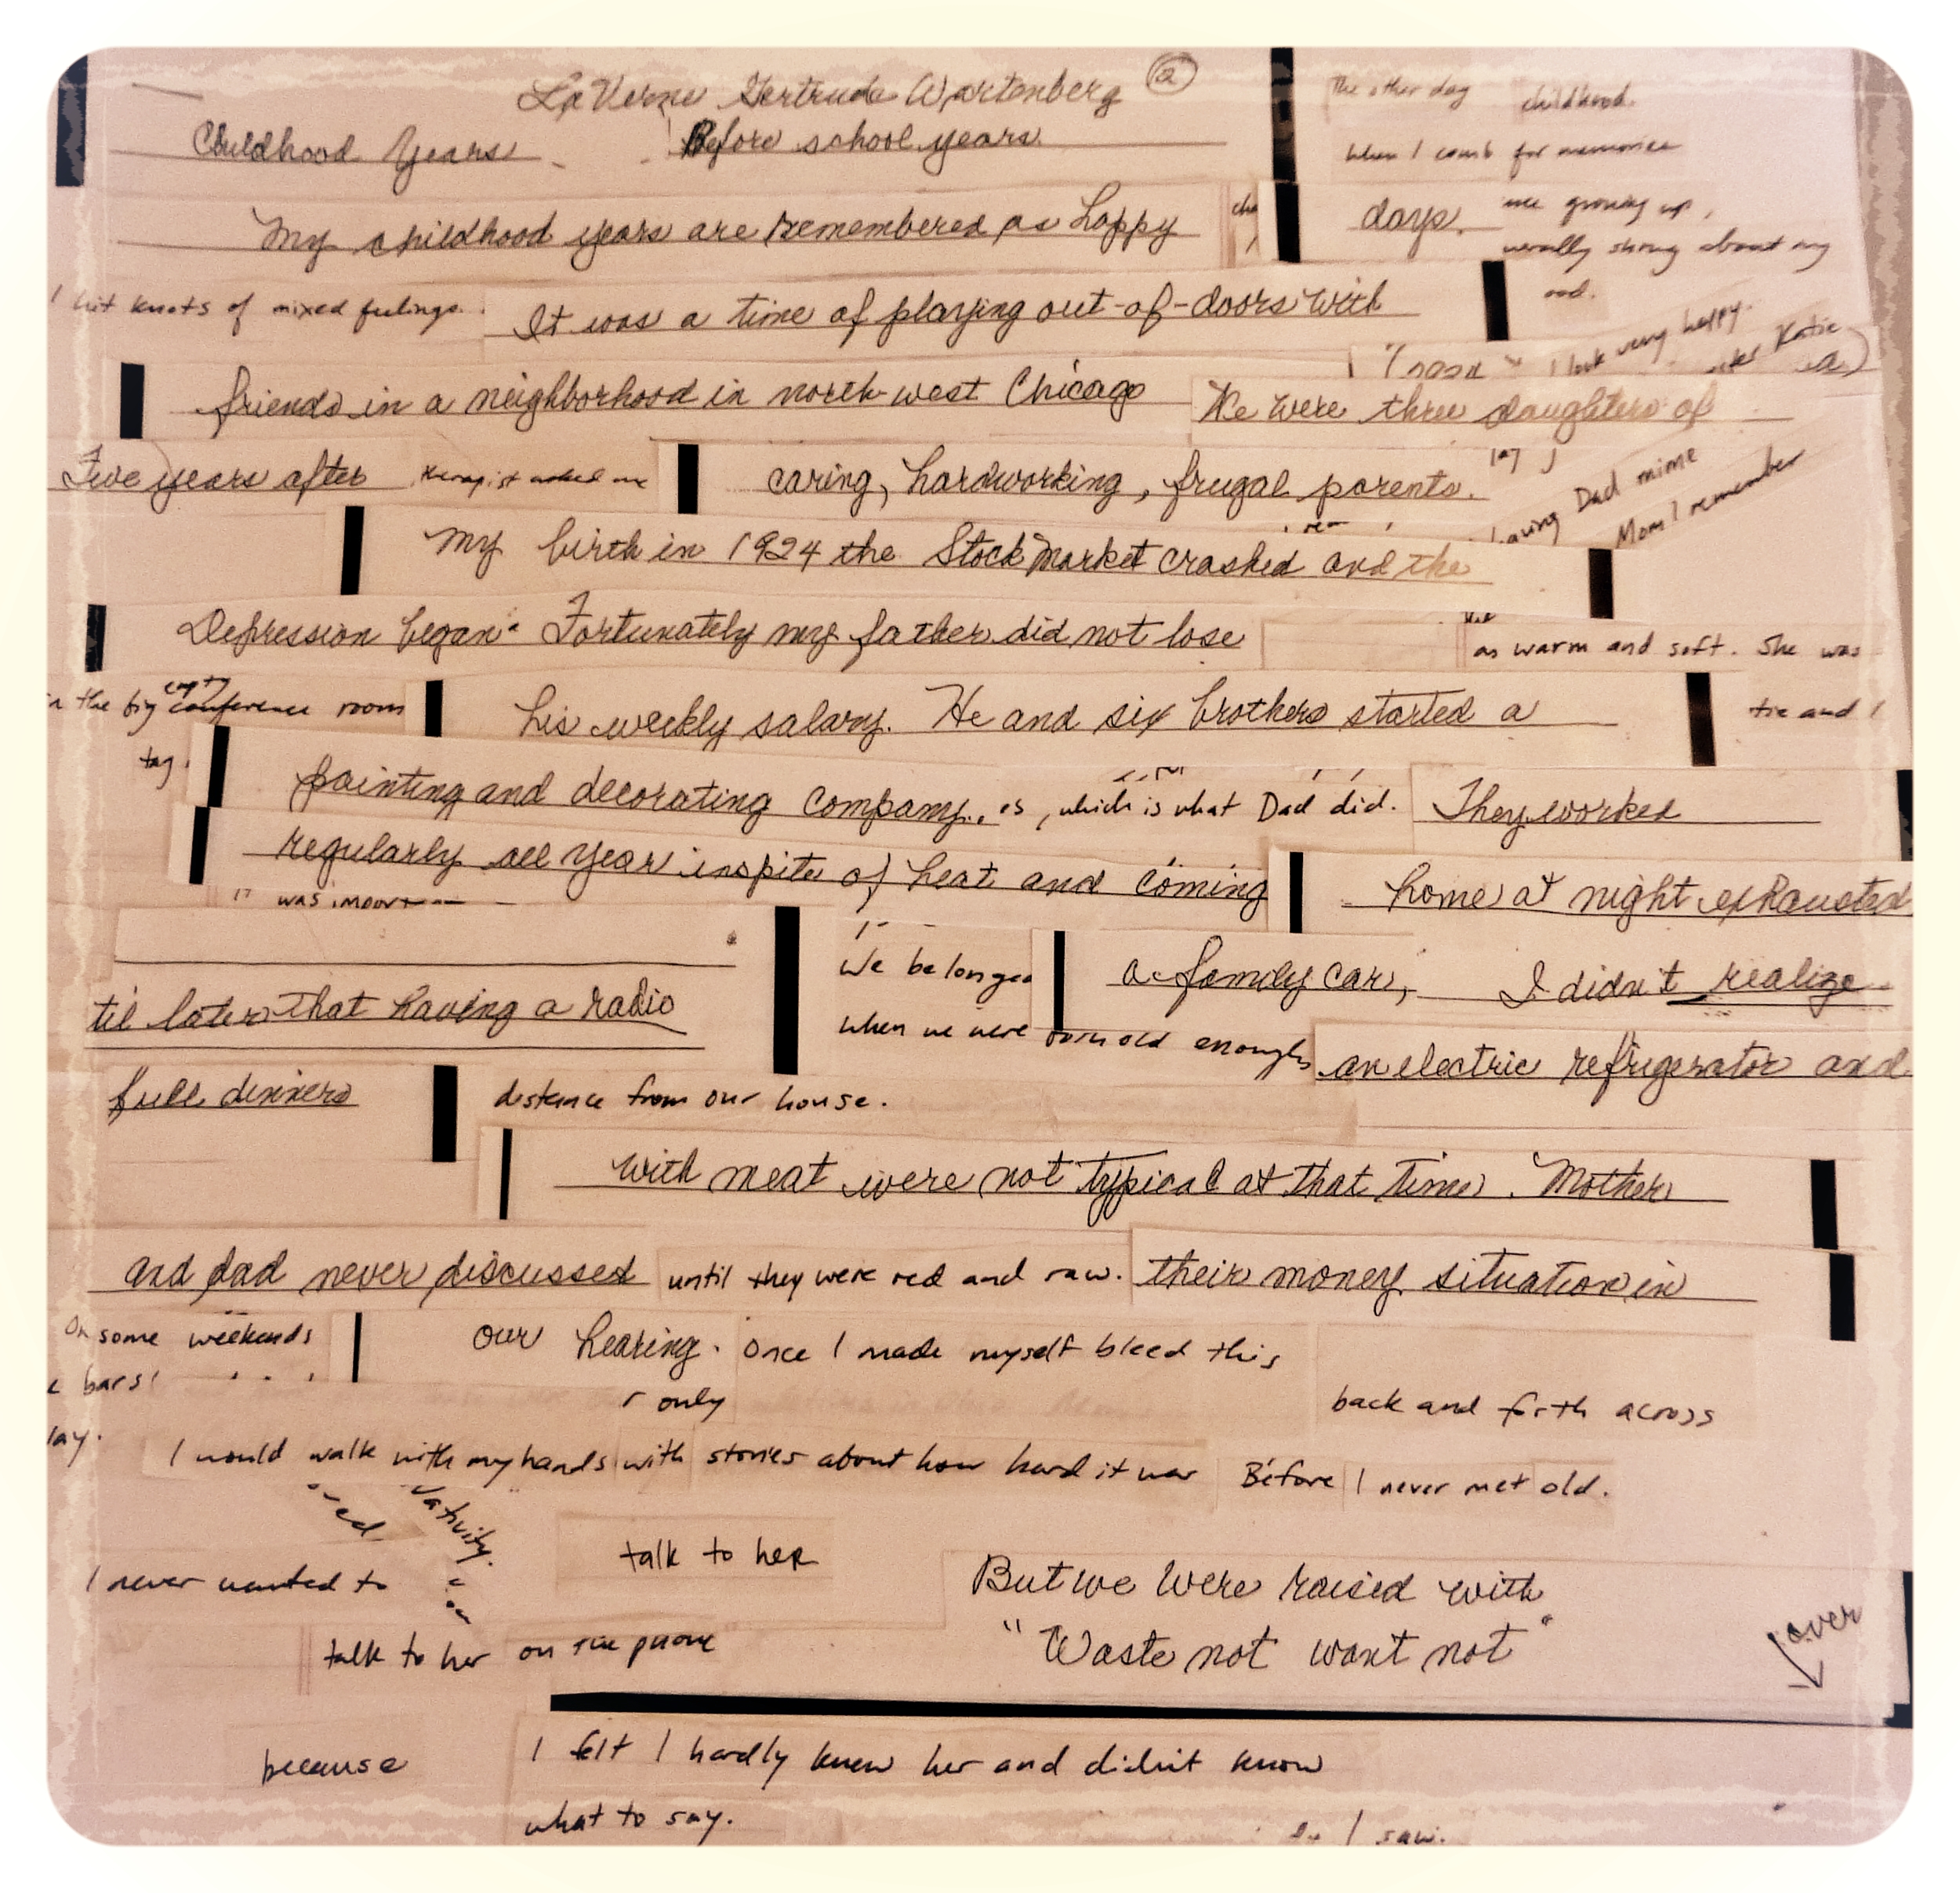 LaVerne Gertrude Wartenberg a
The other day childhood.
Childhood Years Before school years.
When I comb for memories
My childhood years are remembered as happy days.
me growing up,
strong about my
ood.
I hit knots of mixed feelings. It was a time of playing out-of-doors with
I look very happy.
Katie
friends in a neighborhood in north-west Chicago We were three daughters of
Five years after therapist asked me caring, hardworking, frugal parents.
having Dad mime
Mom I remember
my birth in 1924 the Stock Market crashed and the
Depression began. Fortunately my father did not lose
as warm and soft. She was
in the big empty conference room his weekly salary. He and six brothers started a
tie and I
tag.
painting and decorating company. es, which is what Dad did. They worked
regularly all year inspite of heat and coming home at night exhausted
it was
We belonged a family car, I didn't realize
til later that having a radio
when we were old enough, an electric refrigerator and
full dinners distance from our house.
with meat were not typical at that time. Mother
and dad never discussed until they were red and raw. their money situation in
On some weekends our hearing. Once I made myself bleed this
bars!
only back and forth across
lay.
I would walk with my hands with stories about how hard it was Before I never met old.
ativity.
I never wanted to talk to her
But we were raised with
talk to her on the phone "Waste not want not"
over
because I felt I hardly knew her and didn't know
what to say.
I saw.